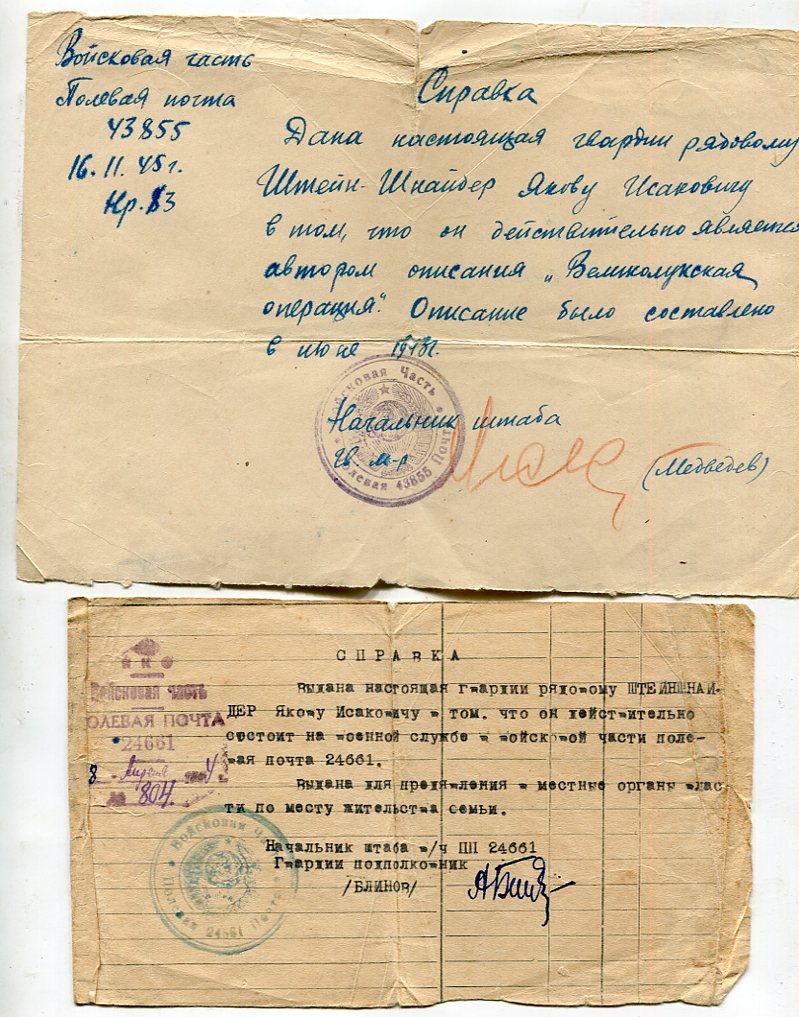 Войсковая часть
Полевая почта
43855
16.11.45г.
Нр. 83
Справка
Дана настоящая гвардии рядовому
Штейн-Шнайдер Якову Исаковичу
в том, что он действительно является
автором описания „Великолукская
операция". Описание было составлено
в июне 1943г.
Войсковая Часть
Полевая 43855 Почта
Начальник штаба
гв. м-р
(Медведев)
СПРАВКА
Выдана настоящая гвардии рядовому ШТЕЙНШНАЙ-
ДЕР Якову Исаковичу в том. что он действительно
состоит на военной службе в войсковой части поле-
вая почта 24661.
Выдана для предявления в местные органы влас
ти по месту жительства семьи.
Начальник штаба в/ч ПП 24661
Гвардии подполковник
/БЛИНОВ/
НКО
Войсковая часть
ПОЛЕВАЯ ПОЧТА
24661
8
№ 804.
Войсковая Часть
Полевая 24661 Почта